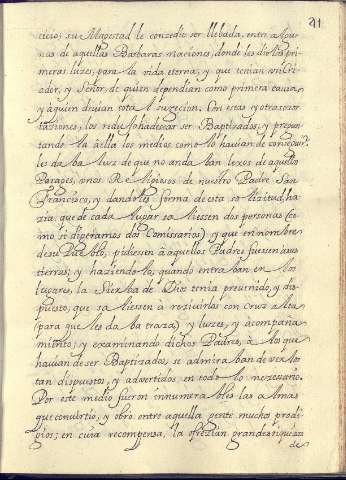 41
cicio; su Magestad le conzedio ser llebada, entre algu-
nas de aquellas Barbaras naciones, donde les dio las pri-
meras luzes, para la vida eterna, y que tenian un Cri-
ador, y Señor, de quien dependian como primera causa,
y a quien devian toda sugecion. Con estas y otras exor-
taciones, los reduzia a desear ser Baptizados, y pregun-
tando la a ella los medios como lo havian de conseguir;
les daba luz de que no andaban lexos de aquellos
Parages, unos Religiosos de nuestro Padre San
Francisco, y dandoles forma de esta solizitud, ha-
zia, que de cada lugar saliessen dos personas (co-
mo si dixeramos dos Comissarios) y que en nombre
de su Pueblo, pidiesen a aquellos Padres fuesen a sus
tierras; y haziendolo, quando entraban en los
lugares, la Sierba de Dios tenia prevenido, y dis-
puesto, que saliessen à rezivirlos con cruz alta
(para que les daba traza) y luzes, y acompaña-
miento; y examinando dichos Padres, à los que
havian de ser Baptizados, se admiraban de verlos
tan dispuestos, y advertidos en todo lo nezessario.
Por este medio fueron innumerables las almas
que convirtio, y obro entre aquella gente muchos prodi-
gios; en cuia recompensa, la ofrezian grandes riquezas
de